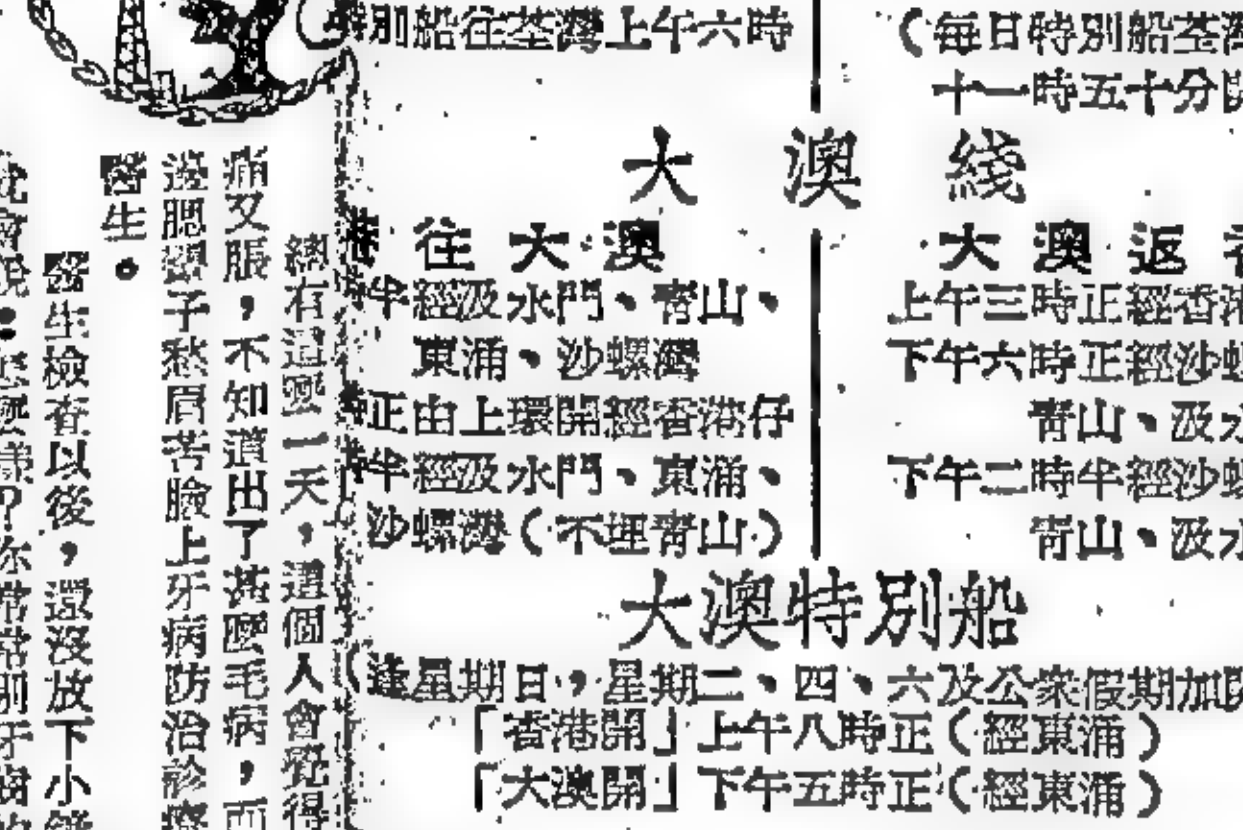 別船往荃灣上午六時
（每日特別船荃灣
十一時五十分開
大澳綫
往大澳
半經汲水門、青山、
東涌、沙螺灣
正由上環開經香港仔
半經汲水門、東涌、
沙螺灣（不埋青山）
大澳返香
上午三時正經香港
下午六時正經沙螺
青山、汲水
下午二時半經沙螺
青山、汲水
大澳特別船
（逢星期日，星期二、四、六及公衆假期加開
「香港開」上午八時正（經東涌）
「大澳開」下午五時正（經東涌）
總有這麼一天，這個人會覺得
痛又脹，不知道出了甚麼毛病，而
邊腮幫子愁眉苦臉上牙病防治診療
醫生。
醫生檢查以後，還沒放下小鏡
怎麼樣？你常常刷牙